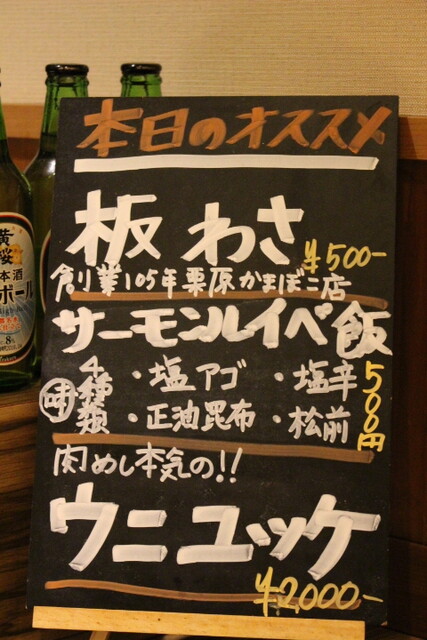 本日のオススメ
板わさ ¥500-
創業105年栗原かまぼこ店
サーモンルイベ飯
500円
味 4種類
・塩アゴ ・塩辛
・正油昆布 ・松前
肉めし本気の!!
ウニユッケ
¥2,000-
黄桜
本酒
ボール
8%